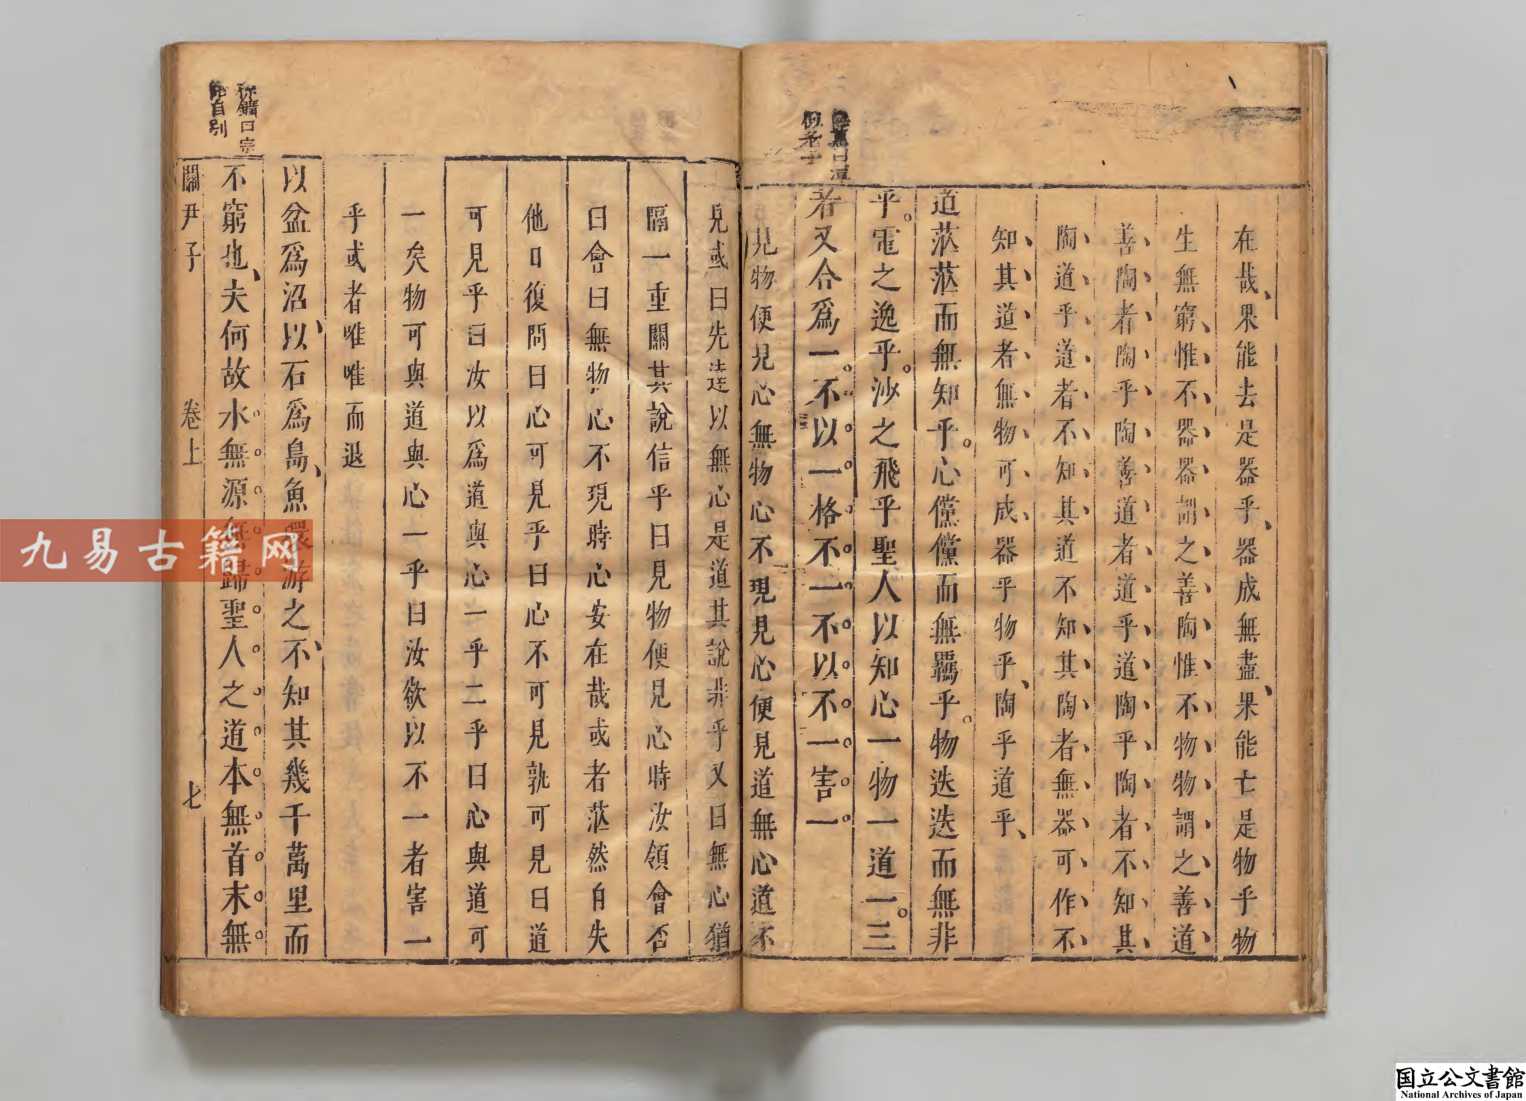 在哉果能去是器乎器成無盡果能亡是物乎物
生無窮惟不器器謂之善陶惟不物物謂之善道
善陶者陶乎陶善道者道乎道陶乎陶者不知其
陶道乎道者不知其道不知其陶者無器可作不
知其道者無物可成器乎物乎陶乎道乎
道茫茫而無知乎心儻儻而無羈乎物迭迭而無非
乎電之逸乎沙之飛乎聖人以知心一物一道一三
者又合爲一不以一格不一不以不一害一
見物便見心無物心不現見心便見道無心道不
見或曰先達以無心是道其說非乎又曰無心猶
隔一重關其說信乎曰見物便見心時汝領會否
曰會曰無物心不現時心安在哉或者茫然自失
他日復問曰心可見乎曰心不可見孰可見曰道
可見乎曰汝以爲道與心一乎二乎曰心與道可
一矣物可與道與心一乎曰汝欲以不一者害一
乎或者唯唯而退
以盆爲沼以石爲島魚環游之不知其幾千萬里而
不窮也夫何故水無源無歸聖人之道本無首末無
關尹子 卷上 七
九易古籍网
国立公文書館
National Archives of Japan